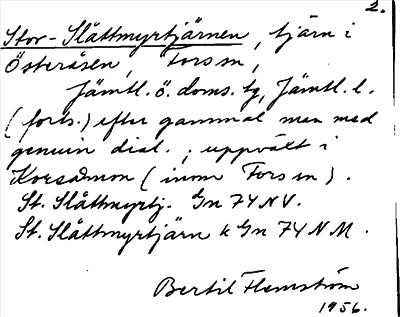 2.
Stor-Slåttmyrtjärnen, tjärn i
Österåsen, Fors sn,
Jämtl. ö. doms. tg, Jämtl. l.
(forts.) efter gammal man med
genuin dial.; uppväxt i
Korsåmon (inom Fors sn).
St. Slåttmyrtj. Gn 74 NV.
St. Slåttmyrtjärn k Gn 74 N M.
Bertil Flemström
1956.